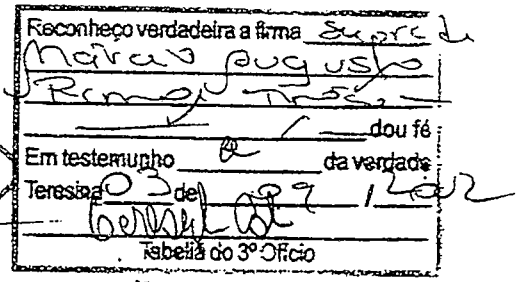 Reconheço verdadeira a firma supra de
Márcio Augusto
Ramos
dou fé
Em testemunho da verdade
Teresina 03 de 09
Tabeliã do 3º Ofício